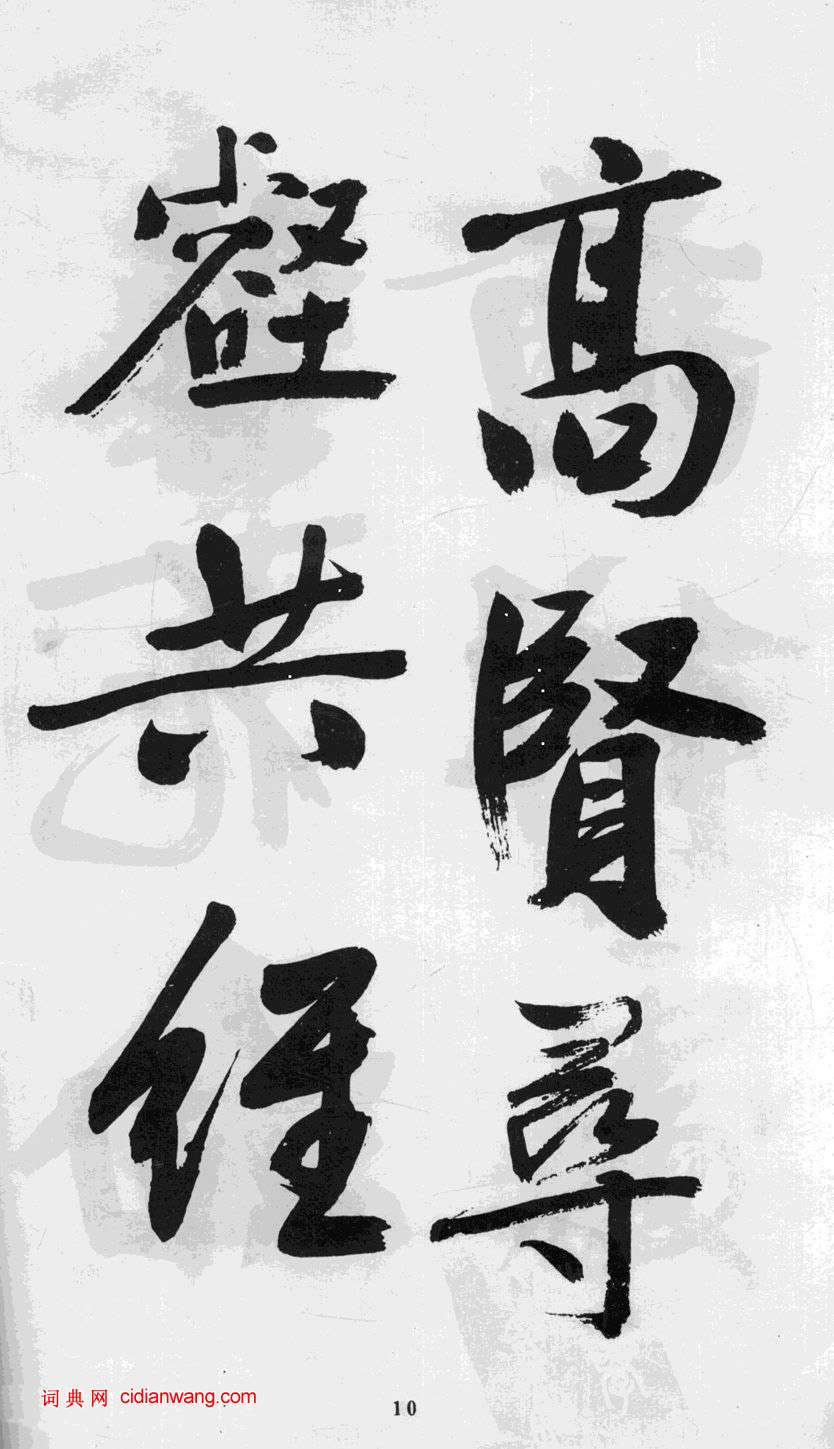 高賢尋
壑共經
词典网 cidianwang.com
10